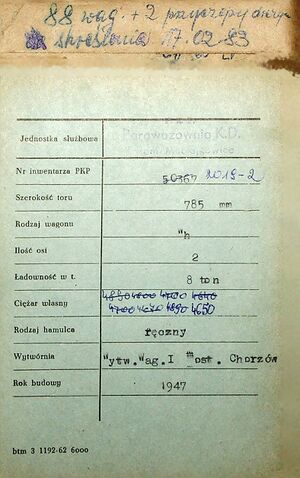 88 wag. + 2 przyczepy
skreślenia 17.02.83
Jednostka służbowa
Parowozownia K.D.
Nr inwentarza PKP 50367 2019-2
Szerokość toru 785 mm
Rodzaj wagonu "h
Ilość osi 2
Ładowność w t. 8 ton
Ciężar własny 4650
Rodzaj hamulca ręczny
Wytwórnia "ytw."ag.I most. Chorzów
Rok budowy 1947
btm 3 1192-62 6000